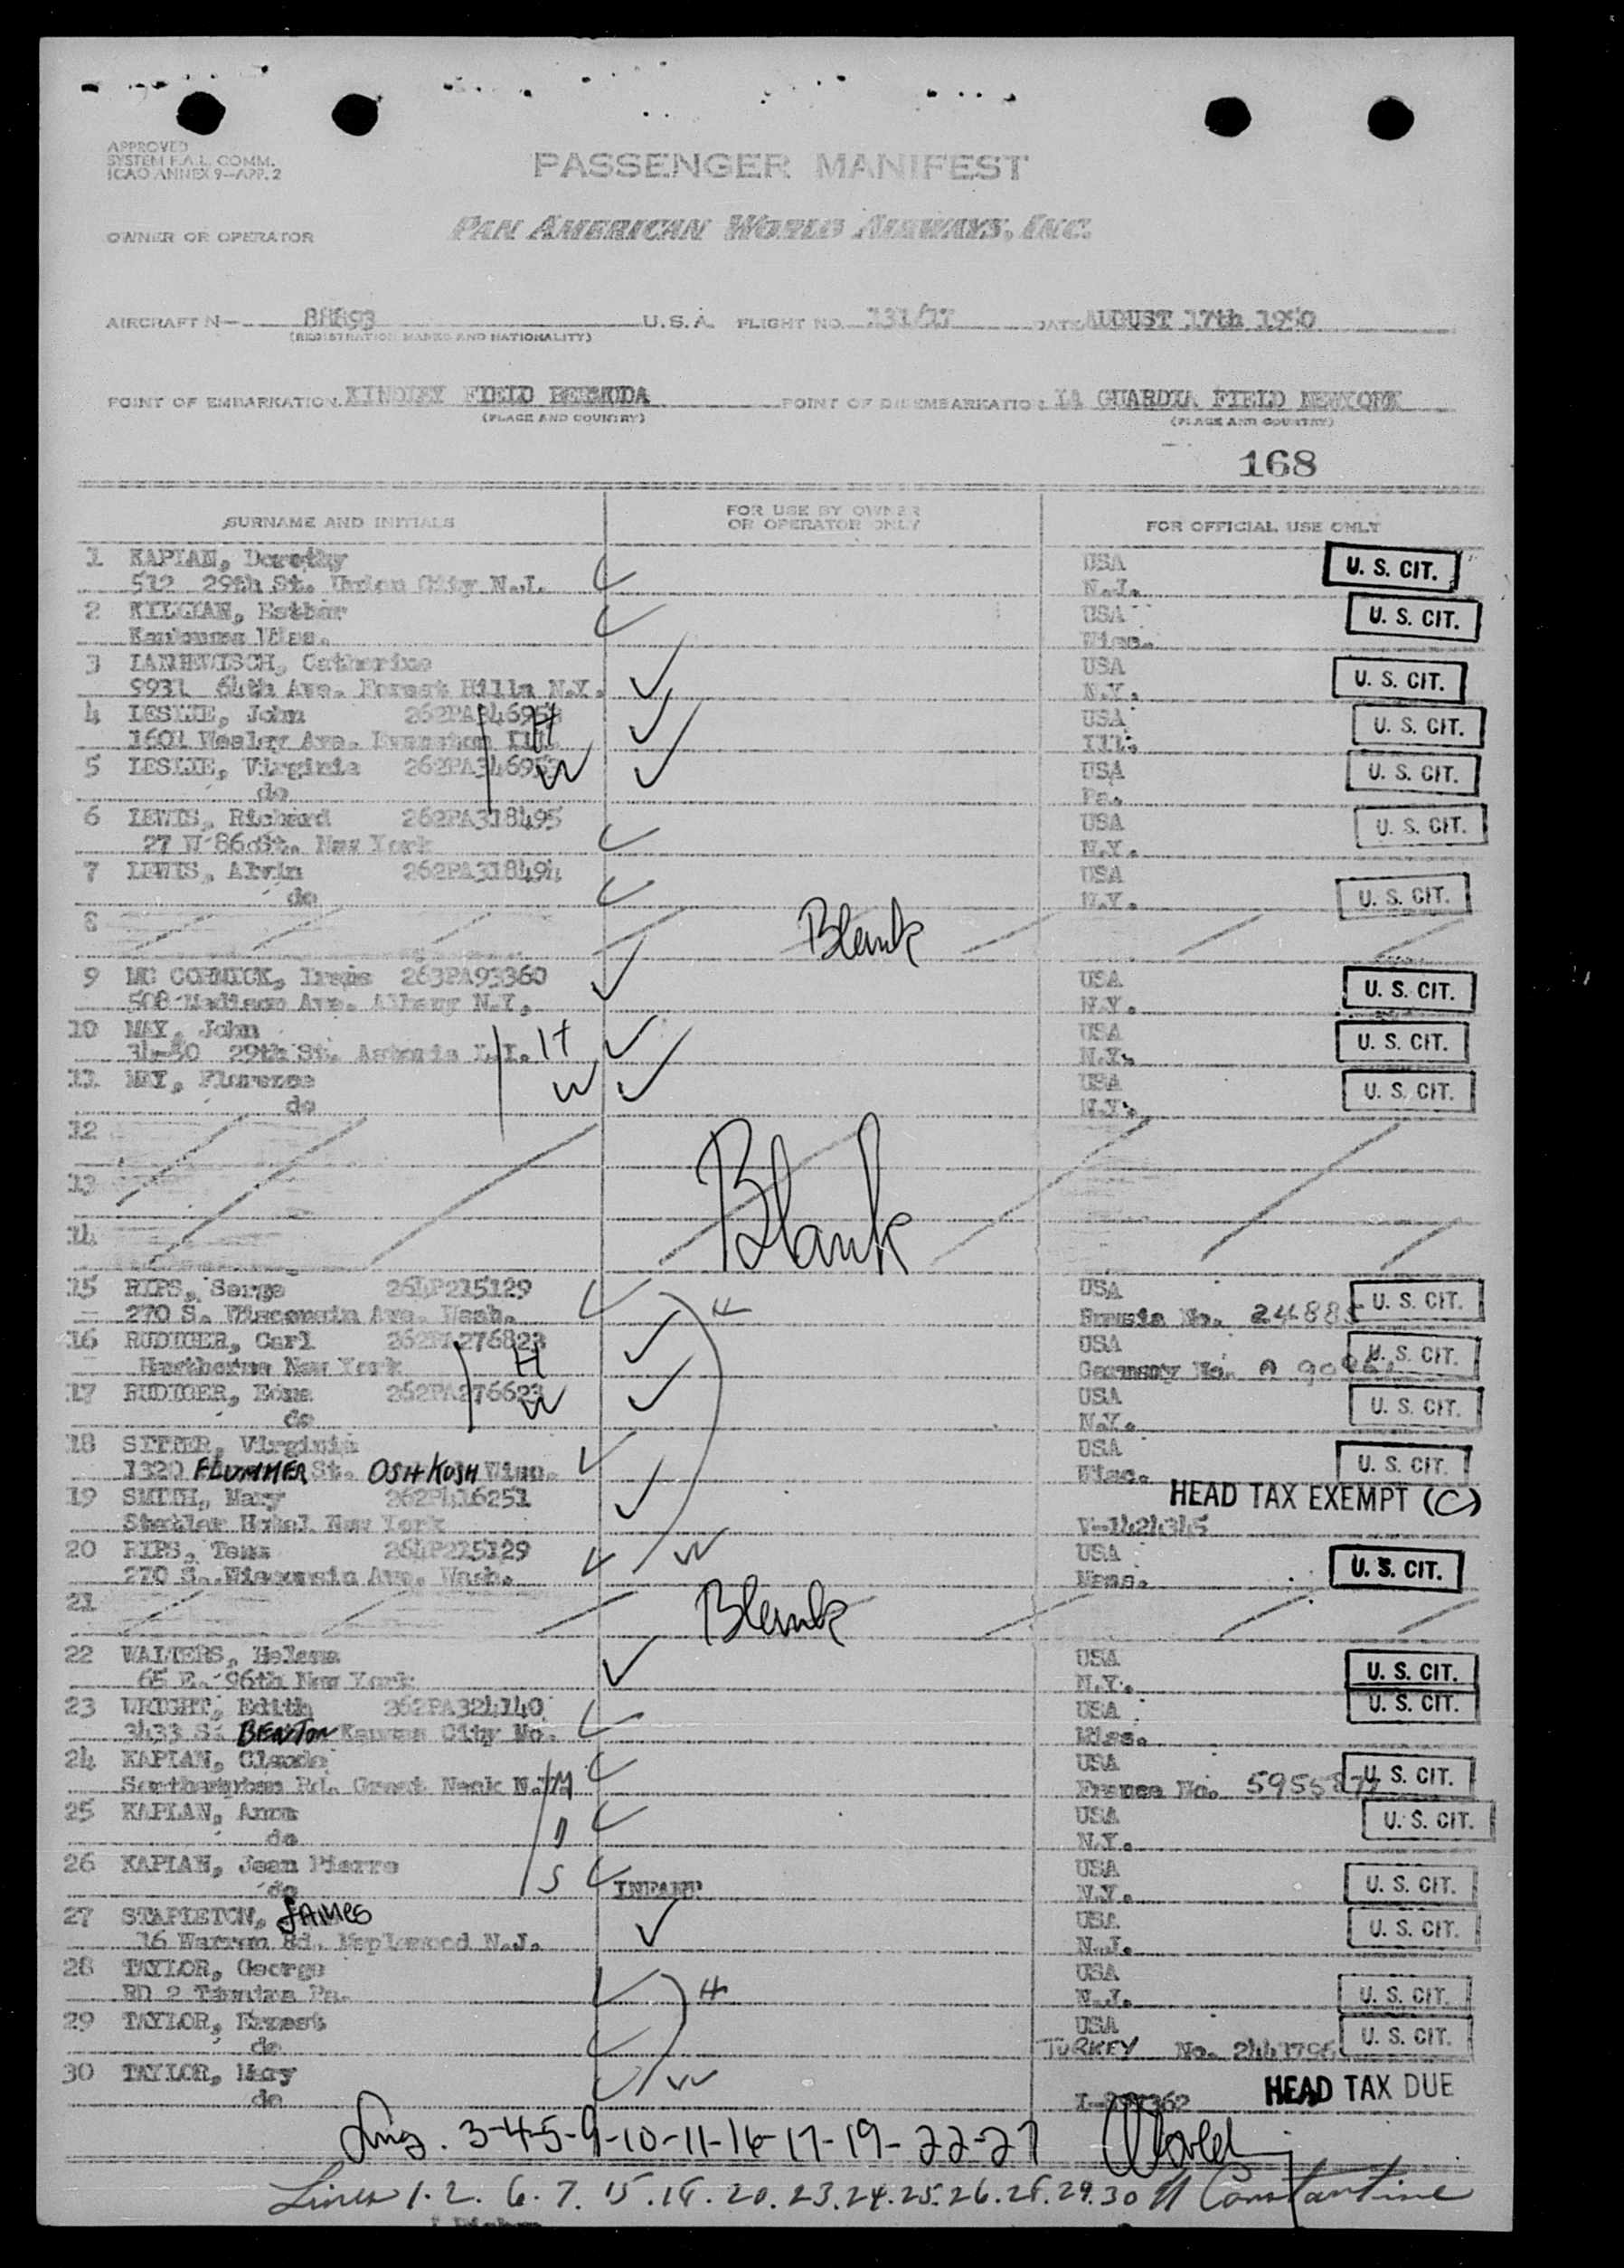 APPROVED
SYSTEM F.A.L. COMM.
ICAO ANNEX 9—APP. 2
PASSENGER MANIFEST
OWNER OR OPERATOR PAN AMERICAN WORLD AIRWAYS, INC.
AIRCRAFT N— 88893 U.S.A. FLIGHT NO. 131/17 DATE AUGUST 17th 1950
(REGISTRATION MARKS AND NATIONALITY)
POINT OF EMBARKATION KINDLEY FIELD BERMUDA POINT OF DISEMBARKATION LA GUARDIA FIELD NEWYORK
(PLACE AND COUNTRY) (PLACE AND COUNTRY)
168
SURNAME AND INITIALS FOR USE BY OWNER OR OPERATOR ONLY FOR OFFICIAL USE ONLY
1 KAPLAN, Dorothy USA U. S. CIT.
512 29th St. Union City N.J. N.J.
2 Esther USA U. S. CIT.
Wisc.
3 Catherine USA U. S. CIT.
9931 64th Ave. Forest Hills N.Y. N.Y.
4 LESLIE, John H USA U. S. CIT.
1601 Wesley Ave. Evanston Ill. Ill.
5 LESLIE, Virginia W USA U. S. CIT.
do Pa.
6 LEWIS, Richard 262PA318495 USA U. S. CIT.
27 W 86 St. New York N.Y.
7 LEWIS, Alvin 262PA318494 USA U. S. CIT.
do N.Y.
8 Blank
9 MC CORMICK, 263PA93360 USA U. S. CIT.
508 Madison Ave. Albany N.Y. N.Y.
10 MAY, John H USA U. S. CIT.
29th St. Astoria L.I. N.Y.
11 MAY, Florence W USA U. S. CIT.
do N.Y.
12
13 Blank
14
15 RIPS, Serge 264P215129 H USA U. S. CIT.
270 S. Wisconsin Ave. Wash. Russia No. 24885
16 RUDIGER, Carl 262PA276823 H USA U. S. CIT.
Hawthorne New York Germany No. A
17 RUDIGER, Edna 262PA276623 W USA U. S. CIT.
do N.Y.
18 Virginia USA U. S. CIT.
1320 FLUMMER St. OSHKOSH Wisc. Wisc.
19 SMITH, Mary 262P416251 HEAD TAX EXEMPT (C)
Statler Hotel New York V-1424345
20 RIPS, 264P215129 W USA U. S. CIT.
270 S. Wisconsin Ave. Wash. Mass.
21 Blank
22 WALTERS, Helena USA U. S. CIT.
65 E. 96th New York N.Y.
23 WRIGHT, Edith 262PA324140 USA U. S. CIT.
3433 S. BENTON Kansas City Mo.
24 KAPLAN, Claude M USA U. S. CIT.
Rd. Great Neck N.Y. France No. 5955877
25 KAPLAN, Anne D USA U. S. CIT.
do N.Y.
26 KAPLAN, Jean Pierre S USA U. S. CIT.
do INFANT N.Y.
27 STAPLETON, JAMES USA U. S. CIT.
16 Warren Rd. Maplewood N.J. N.J.
28 TAYLOR, George H USA U. S. CIT.
RD 2 Pa. N.J.
29 TAYLOR, Ernest USA U. S. CIT.
do TURKEY No. 2441796
30 TAYLOR, Mary W HEAD TAX DUE
do
Lines. 3-4-5-9-10-11-16-17-19-22-27
Lines 1. 2. 6. 7. 15. 18. 20. 23. 24. 25. 26. 28. 29. 30 Constantine